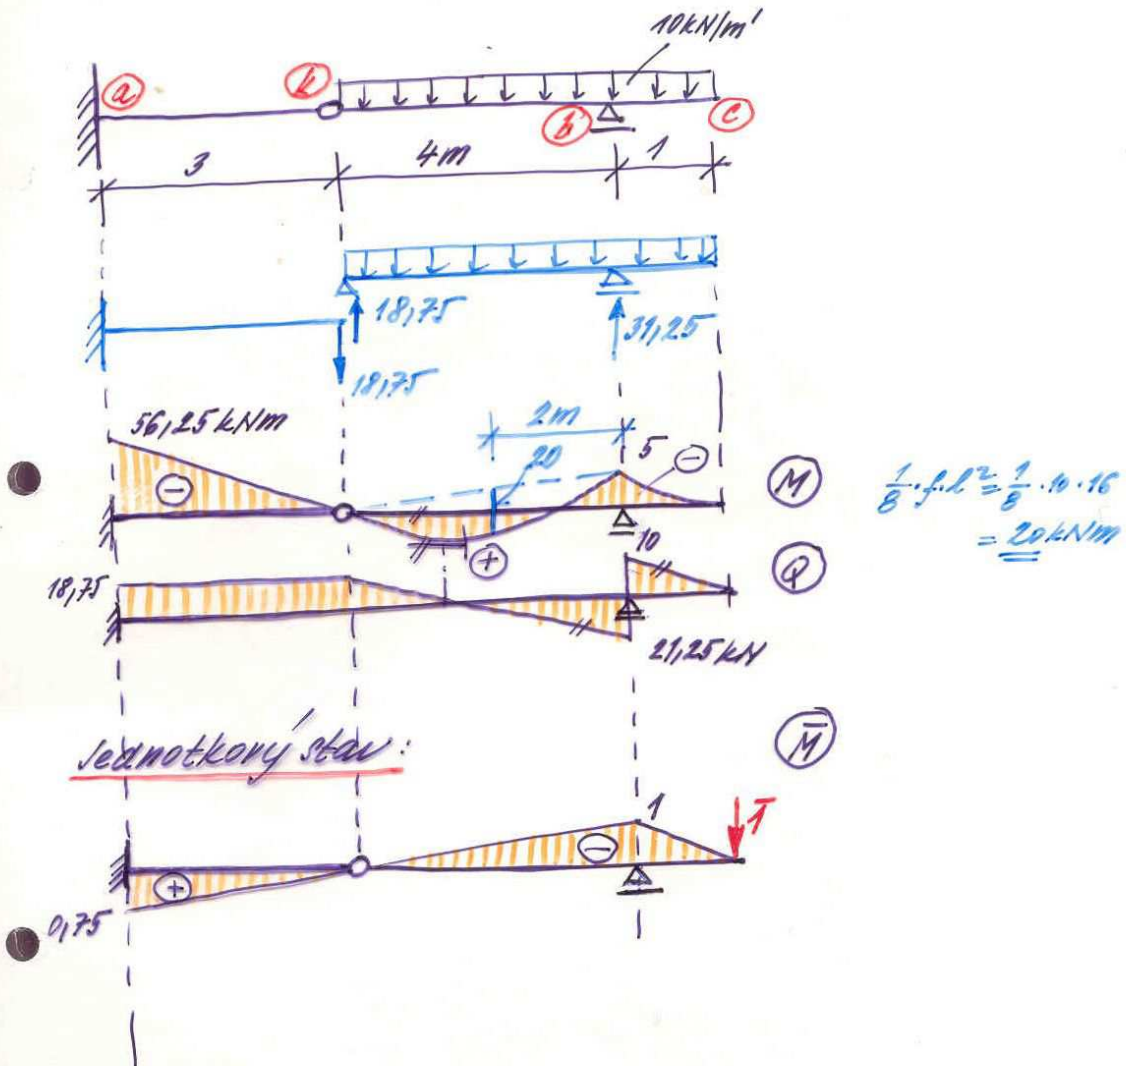 10kN/m'
a k b c
3 4m 1
18,75 31,25
18,75
56,25 kNm 2m
20 5 − M
− + 
1/8 · f · l² = 1/8 · 10 · 16
= 20 kNm
18,75 10 Q
21,25 kN
Jednotkový stav: M̄
1 1̄
+ −
0,75